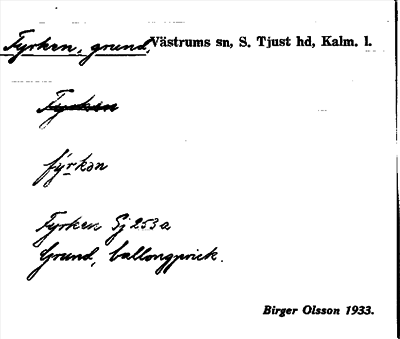 Fyrken, grund, Västrums sn, S. Tjust hd, Kalm. l.
Fyrken
fy̱rkən
Fyrken Sj 253 a
Grund, ballongprick.
Birger Olsson 1933.